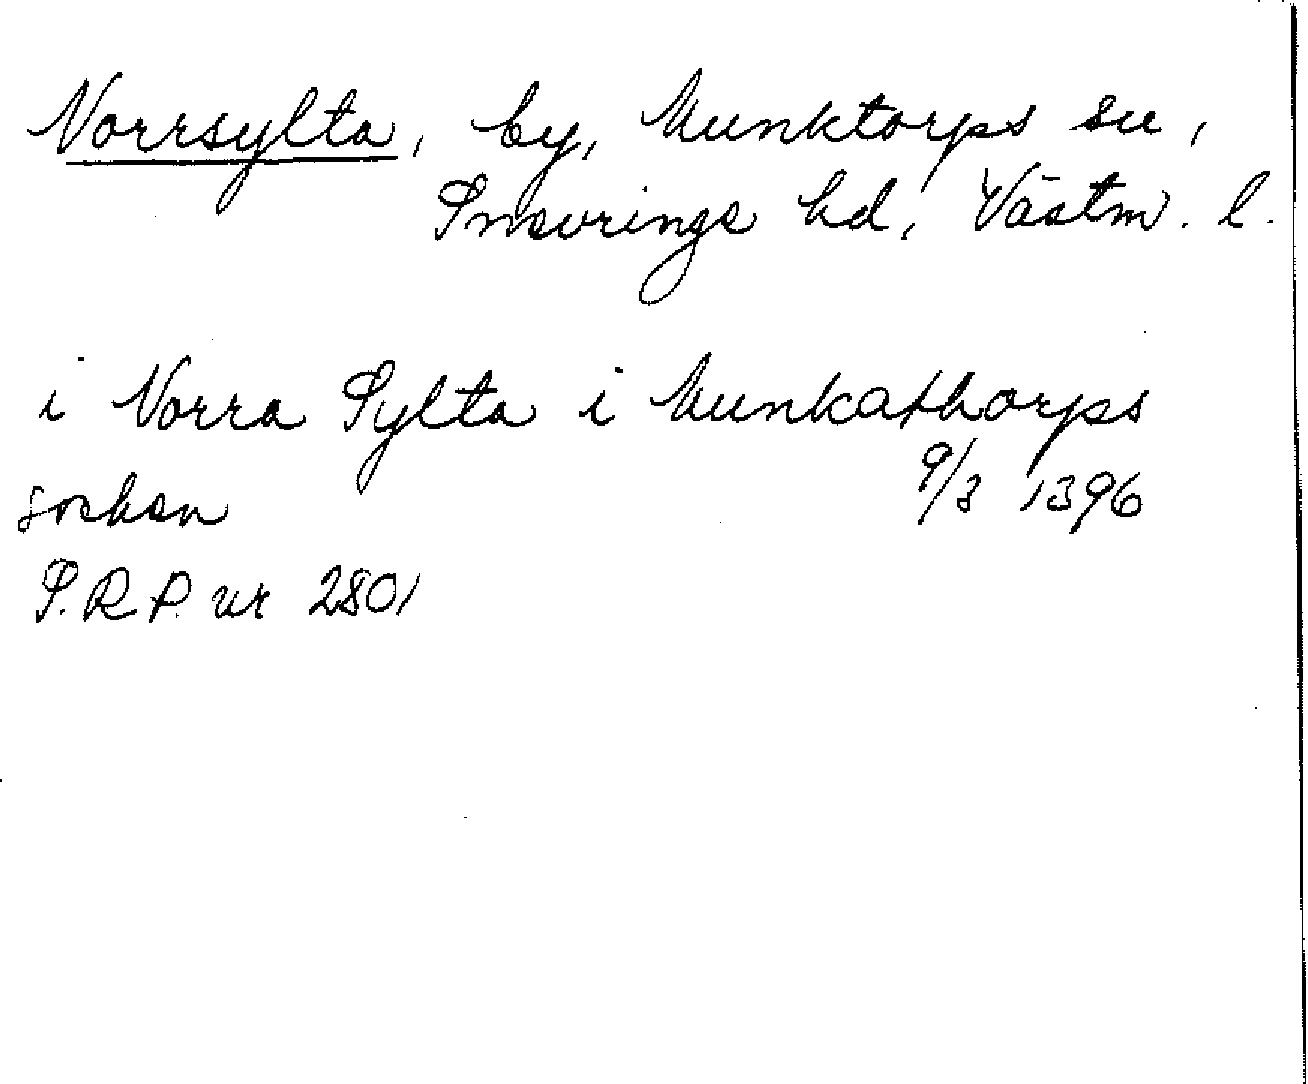 Norrsylta, by, Munktorps sn,
Snevringe hd, Västm. l.
i Norra Sylta i Munkathorps
socken 9/3 1396
S.R.P. nr 2801